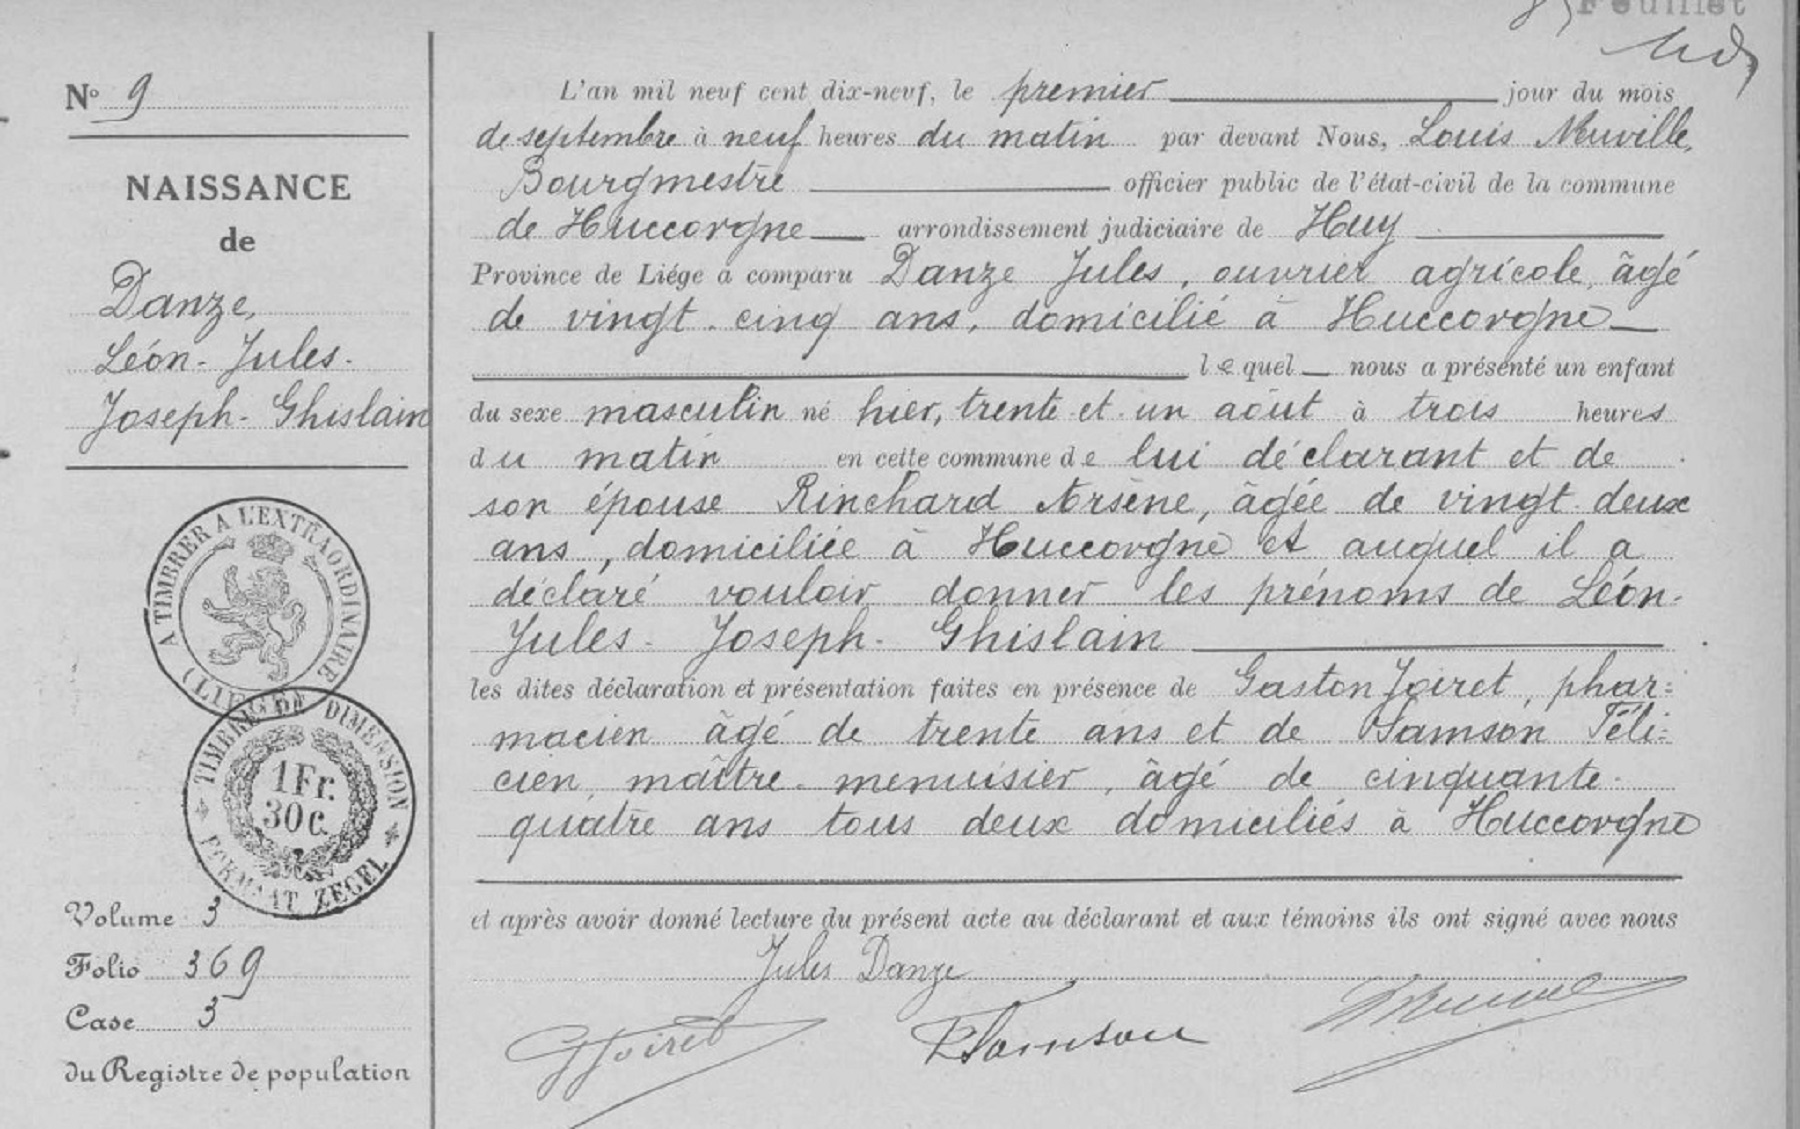 Feuillet
N° 9
NAISSANCE
de
Danze,
Léon - Jules -
Joseph - Ghislain
A TIMBRER A L'EXTRAORDINAIRE
(LIEGE)
TIMBRE DE DIMENSION
1 Fr.
30 c.
FORMAAT ZEGEL
Volume 3
Folio 369
Case 3
du Registre de population
L'an mil neuf cent dix-neuf, le premier jour du mois
de septembre à neuf heures du matin par devant Nous, Louis Neuville,
Bourgmestre officier public de l'état-civil de la commune
de Huccorgne arrondissement judiciaire de Huy
Province de Liége a comparu Danze Jules, ouvrier agricole, âgé
de vingt-cinq ans, domicilié à Huccorgne
lequel nous a présenté un enfant
du sexe masculin né hier, trente-et-un août à trois heures
du matin en cette commune de lui déclarant et de
son épouse Rinchard Arsène, âgée de vingt-deux
ans, domiciliée à Huccorgne et auquel il a
déclaré vouloir donner les prénoms de Léon-
Jules - Joseph - Ghislain
les dites déclaration et présentation faites en présence de Gaston Joiret, phar=
macien âgé de trente ans et de Samson Féli=
cien, maître-menuisier, âgé de cinquante-
quatre ans tous deux domiciliés à Huccorgne
et après avoir donné lecture du présent acte au déclarant et aux témoins ils ont signé avec nous
Jules Danze
GJoiret FSamson